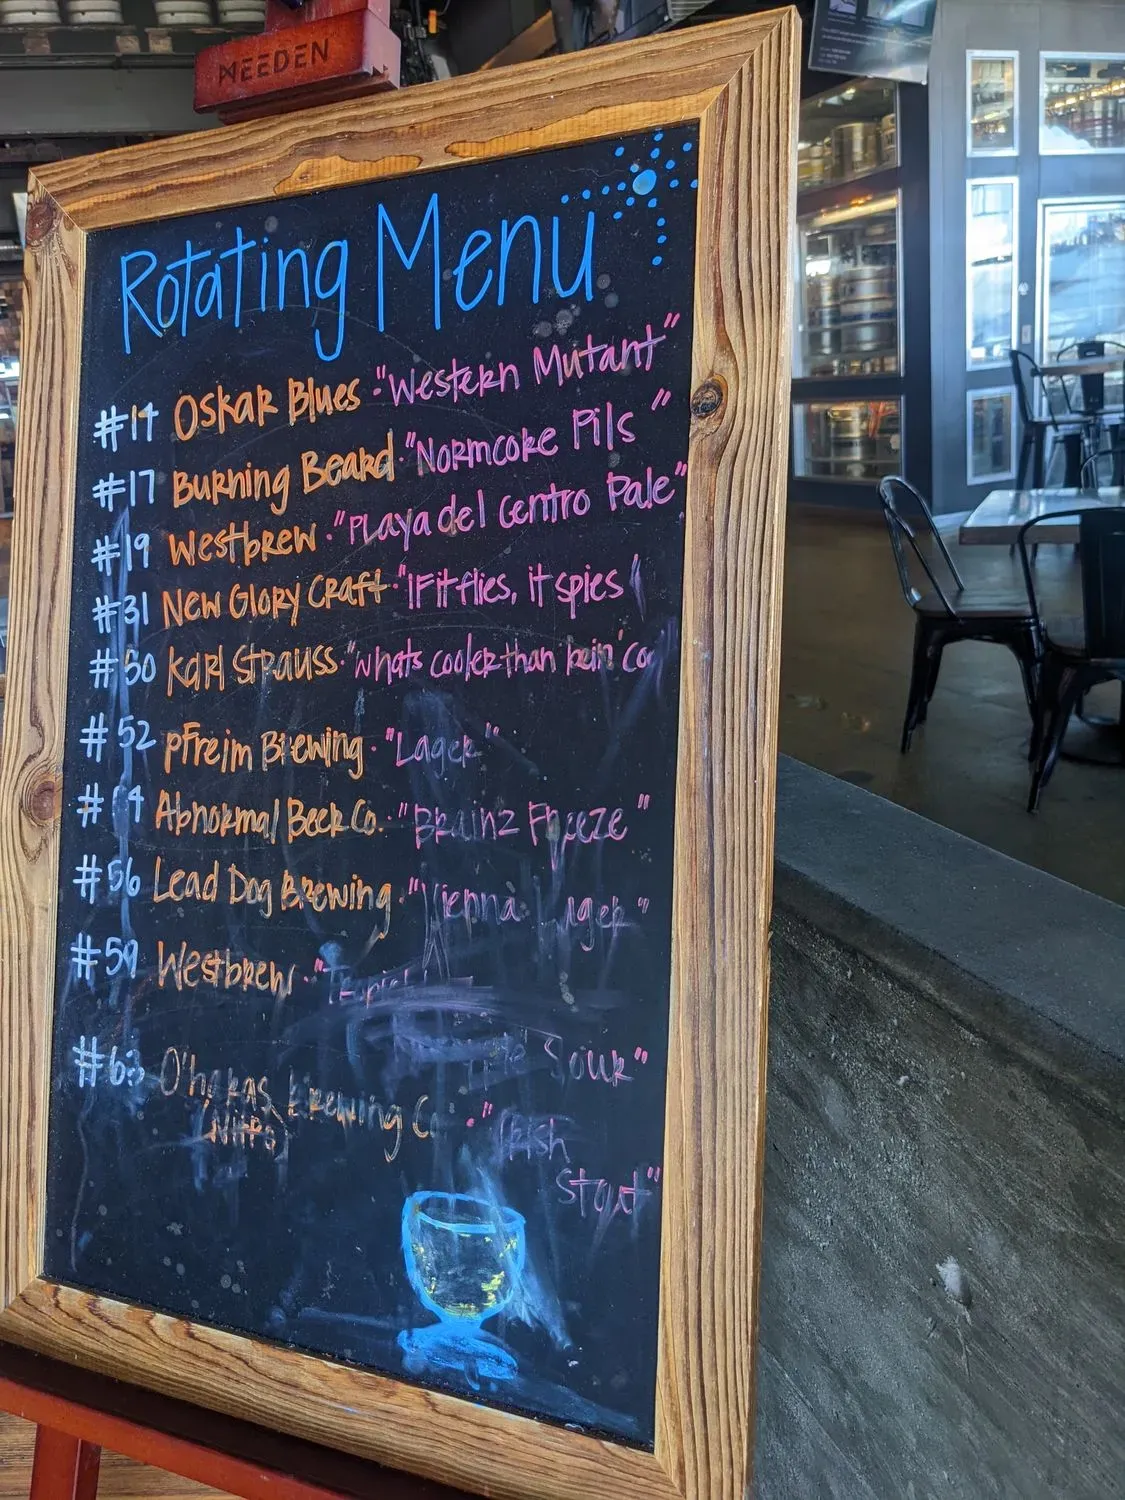 MEEDEN
Rotating Menu
#14 Oskar Blues · "Western Mutant"
#17 Burning Beard · "Normcore Pils"
#19 Westbrew · "Playa del Centro Pale"
#31 New Glory Craft · "If it flies, it spies
#50 Karl Strauss · "whats cooler than bein' coo
#52 pFreim Brewing · "Lager"
# Abnormal Beer Co. · "Brainz Freeze"
#56 Lead Dog Brewing · "Vienna Lager"
#59 Westbrew · "
Sour"
#63 O'haras Brewing Co · "Irish
(Nitro)
Stout"